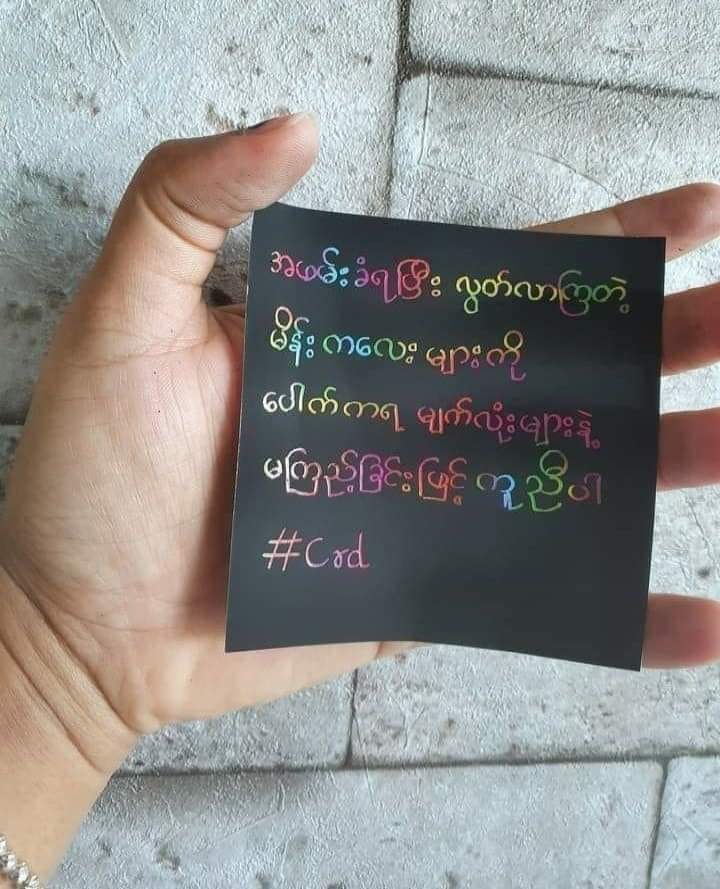 အဖမ်းခံရပြီး လွတ်လာကြတဲ့
မိန်းကလေးများကို
ပေါက်ကရ မျက်လုံးများနဲ့
မကြည့်ခြင်းဖြင့် ကူညီပါ
#Crd